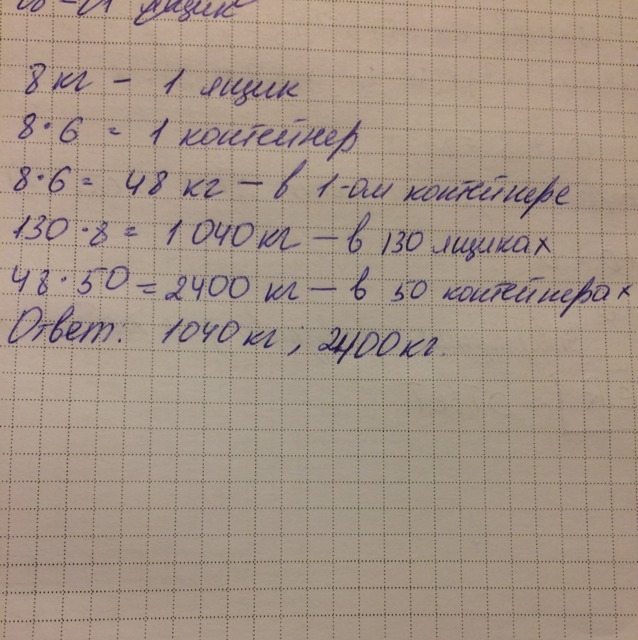 ящик
8 кг – 1 ящик
8·6 = 1 контейнер
8·6 = 48 кг – в 1-ом контейнере
130·8 = 1 040 кг – в 130 ящиках
48·50 = 2400 кг – в 50 контейнерах
Ответ: 1040 кг ; 2400 кг.